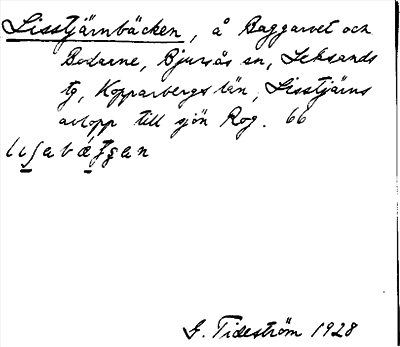 Lisstjärnbäcken, å Baggarvet och
Bodarne, Bjursås sn, Leksands
tg, Kopparbergs län, Lisstjärns
avlopp till sjön Rog. 66
G. Tideström 1928